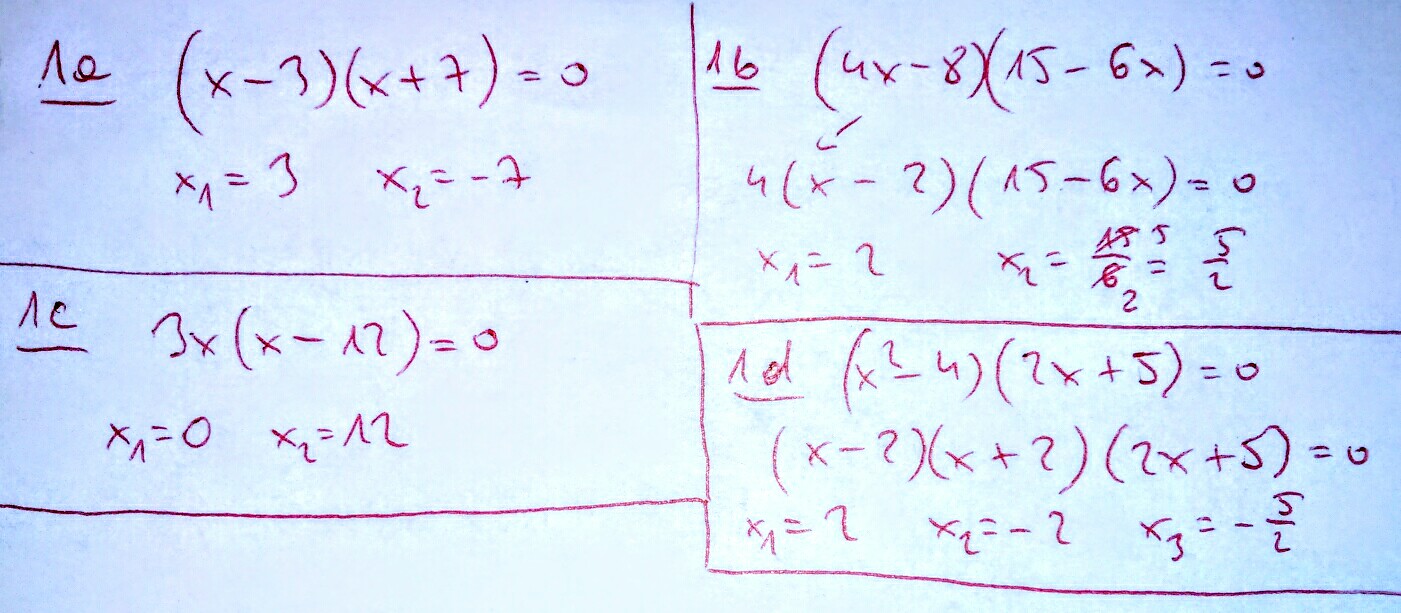 1a (x-3)(x+7)=0
x₁=3 x₂=-7
1b (4x-8)(15-6x)=0
4(x-2)(15-6x)=0
x₁=2 x₂=15/6 5/2=5/2
1c 3x(x-12)=0
x₁=0 x₂=12
1d (x²-4)(2x+5)=0
(x-2)(x+2)(2x+5)=0
x₁=2 x₂=-2 x₃=-5/2